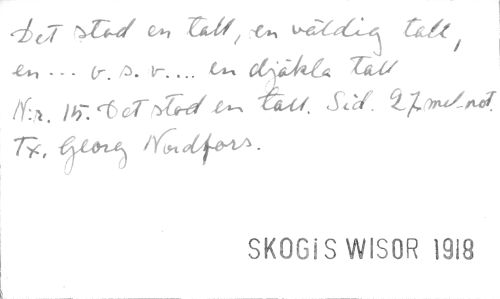 Det stod en tall, en väldig tall,
en... o.s.v.... en djäkla tall
N:r. 15. Det stod en tall. Sid. 27 mel-not.
Tx. Georg Nordfors.
SKOGiS WISOR 1918